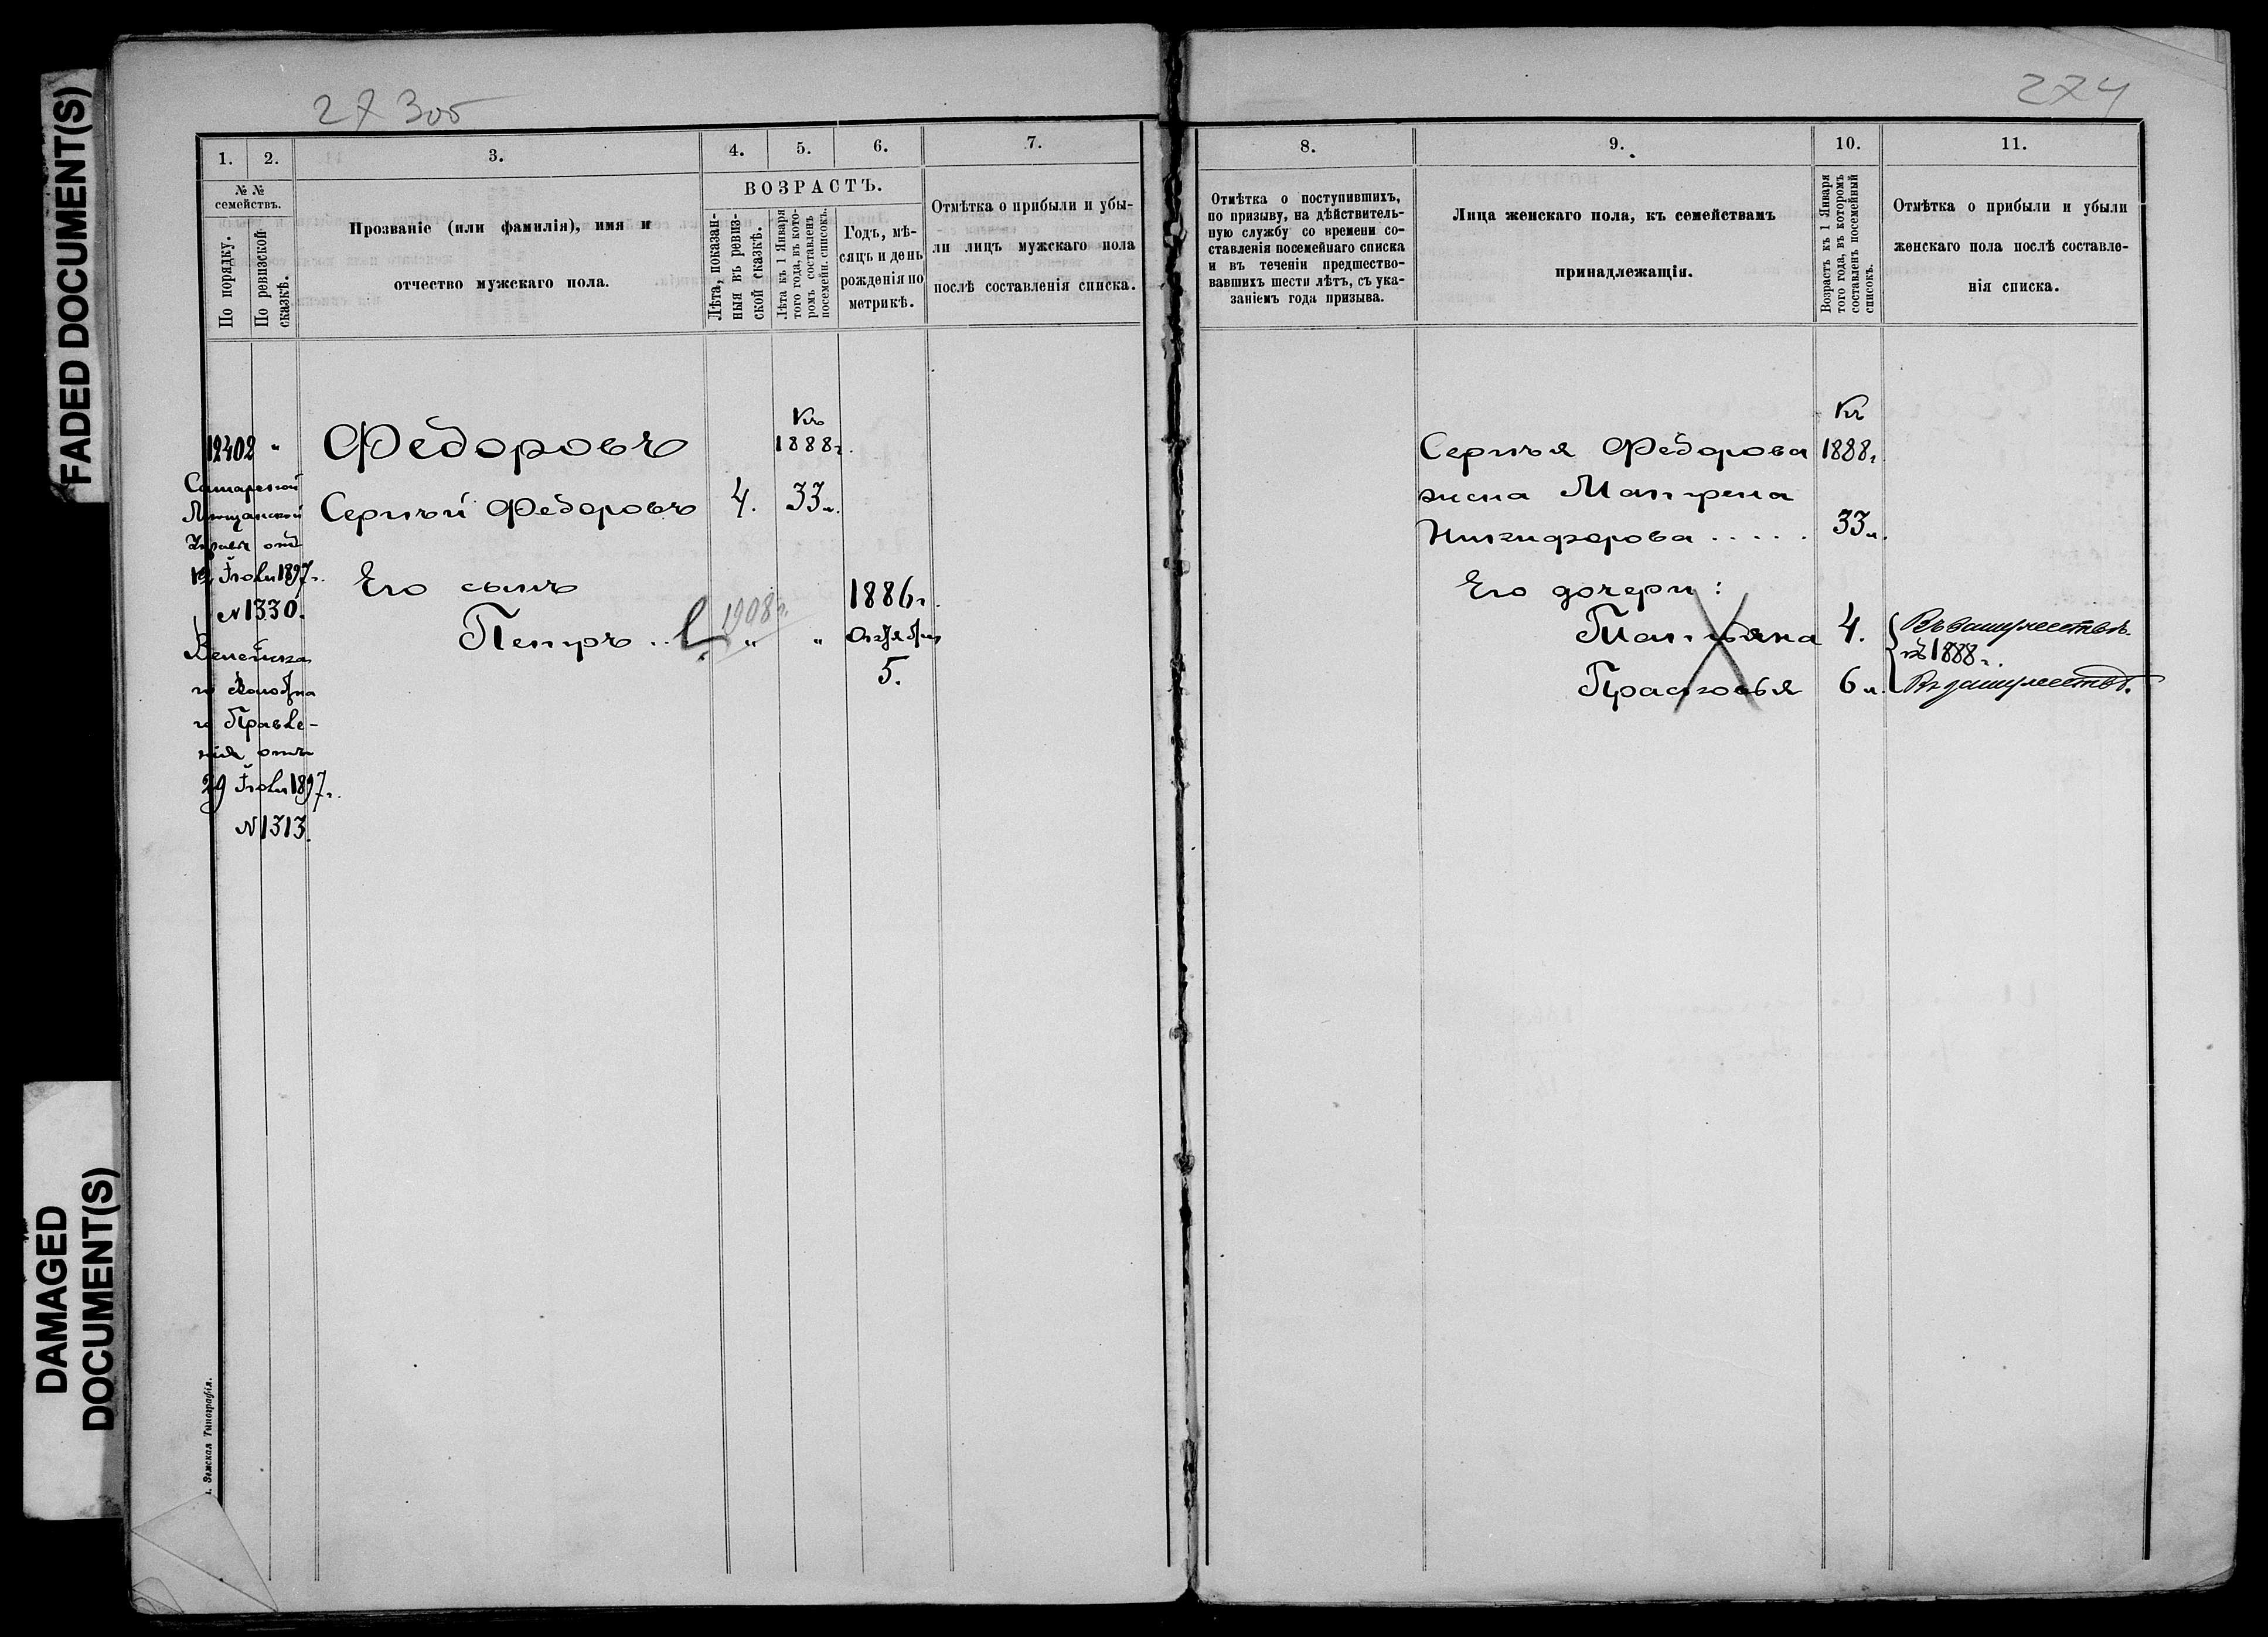 FADED DOCUMENT(S)
DAMAGED
DOCUMENT(S)
27 305
274
1.
2.
3.
4.
5.
6.
7.
№ №
семействъ.
По порядку.
По ревизской
сказкѣ.
Прозваніе (или фамилія), имя и
отчество мужскаго пола.
ВОЗРАСТЪ.
Лѣта, показан-
ныя въ ревиз-
ской сказкѣ.
Лѣта къ 1 Января
того года, въ кото-
ромъ составленъ
посемейн. списокъ.
Годъ, мѣ-
сяцъ и день
рожденія по
метрикѣ.
Отмѣтка о прибыли и убы-
ли лицъ мужскаго пола
послѣ составленія списка.
12402 "
Самарской
Мѣщанской
Управы отъ
Іюля 1897 г.
№ 1330.
Волостна
го Правле-
нія отъ
29 Іюля 1897 г.
№ 1313.
Федоровъ
Къ
1888 г.
Сергѣй Федоровъ 4. 33 л.
Его сынъ
Петръ .. 1908 г. " "
1886 г.
Октября
5.
Земская Типографія.
8.
9.
10.
11.
Отмѣтка о поступившихъ,
по призыву, на дѣйствитель-
ную службу со времени со-
ставленія посемейнаго списка
и въ теченіи предшество-
вавшихъ шести лѣтъ, съ ука-
заніемъ года призыва.
Лица женскаго пола, къ семействамъ
принадлежащія.
Возрастъ къ 1 Января
того года, въ которомъ
составленъ посемейный
списокъ.
Отмѣтка о прибыли и убыли
женскаго пола послѣ составле-
нія списка.
Къ
Сергѣя Федорова 1888 г.
жена Матрена
Никифорова ..... 33 л.
Его дочери:
Татьяна 4. Въ замужествѣ
къ 1888 г.
Прасковья 6 л. Въ замужествѣ.